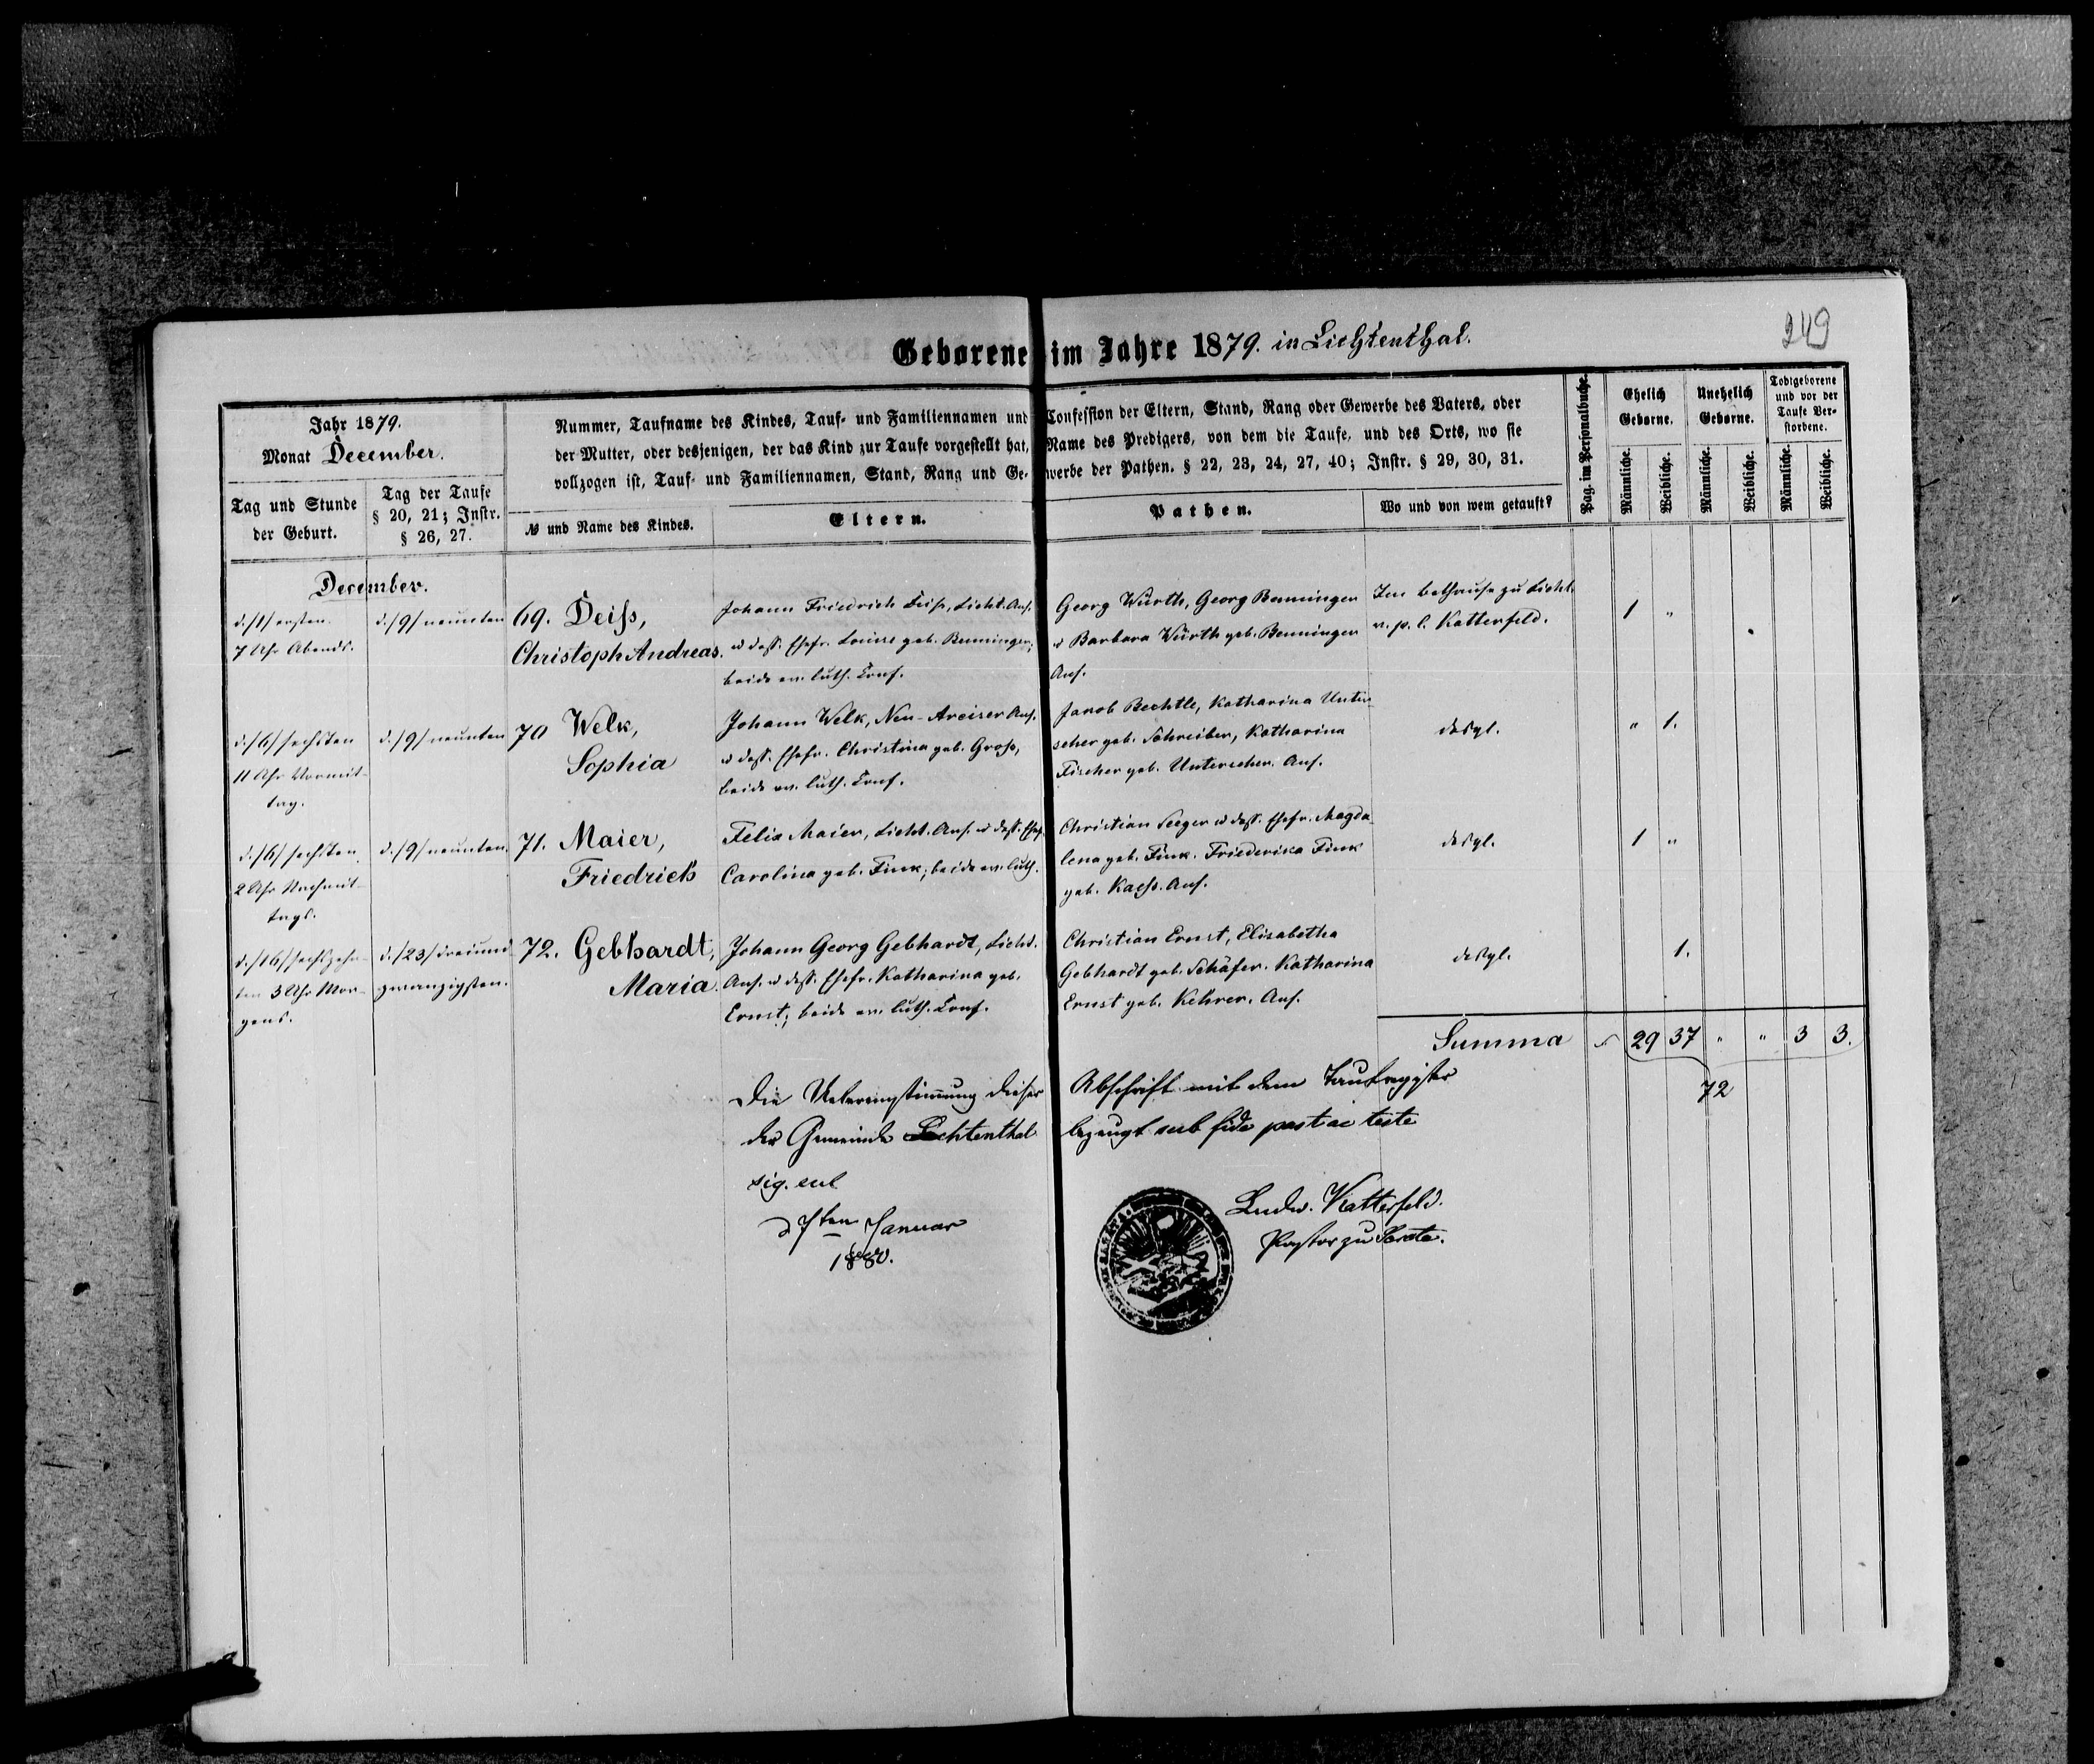 249
Geborene im Jahre 1879. in Lichtenthal.
Jahr 1879.
Monat December.
Tag und Stunde
der Geburt.
Tag der Taufe
§ 20, 21; Instr.
§ 26, 27.
Nummer, Taufname des Kindes, Tauf- und Familiennamen und Confession der Eltern, Stand, Rang oder Gewerbe des Vaters, oder
der Mutter, oder desjenigen, der das Kind zur Taufe vorgestellt hat, Name des Predigers, von dem die Taufe, und des Orts, wo sie
vollzogen ist, Tauf- und Familiennamen, Stand, Rang und Gewerbe der Pathen. § 22, 23, 24, 27, 40; Instr. § 29, 30, 31.
№ und Name des Kindes.
Eltern.
Pathen.
Wo und von wem getauft?
Pag. im Personalbuche.
Ehelich
Geborne.
Unehelich
Geborne.
Todtgeborene
und vor der
Taufe Ver-
storbene.
Männliche.
Weibliche.
Männliche.
Weibliche.
Männliche.
Weibliche.
December.
d. /1/ ersten
7 Uhr Abends.
d. /9/ neunten
69. Deiß,
Christoph Andreas.
Johann Friedrich Deiß, Licht. Ans.
u dess. Ehefr. Louise geb. Benninger;
beide ev. luth. Conf.
Georg Würth, Georg Benninger
u Barbara Würth geb. Benninger
Ans.
Im Bethause zu Licht.
v. p. l. Katterfeld.
1 "
d. /6/ sechsten
11 Uhr Vormit-
tag.
d. /9/ neunten
70 Welk,
Sophia
Johann Welk, Neu-Arciser Ans.
u dess. Ehefr. Christina geb. Groß,
beide ev. luth. Conf.
Jacob Bechtle, Katharina Unter-
seher geb. Schreiber, Katharina
Fischer geb. Unterseher. Ans.
desgl.
" 1.
d. /6/ sechsten
2 Uhr Nachmit-
tags.
d. /9/ neunten.
71. Maier,
Friedrich
Felix Maier, Licht. Ans. u dess. Ehefr.
Carolina geb. Fink; beide ev. luth.
Christian Seeger u dess. Ehefr. Magda-
lena geb. Fink. Friederika Fink
geb. Kaeß. Ans.
desgl.
1 "
d. /16/ sechszehn-
ten 3 Uhr Mor-
gens.
d. /23/ dreiund-
zwanzigsten.
72. Gebhardt,
Maria.
Johann Georg Gebhardt, Licht.
Ans. u dess. Ehefr. Katharina geb.
Ernst; beide ev. luth. Conf.
Christian Ernst, Elisabetha
Gebhardt geb. Schäfer. Katharina
Ernst geb. Kehrer. Ans.
desgl.
1.
Summa 29 37 " " 3 3.
72
Die Uebereinstimmung dieser Abschrift mit dem Taufregister
der Gemeinde Lichtenthal bezeugt sub fide pastae teste
sig.
d 7ten Januar
1880.
Ludw. Katterfeld.
Pastor zu Sarata.